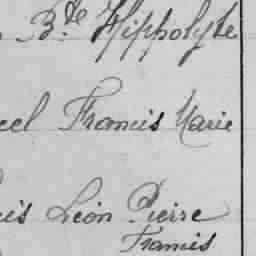 Bte Hippolyte
el Francis Marie
is Léon Pierre
Francis